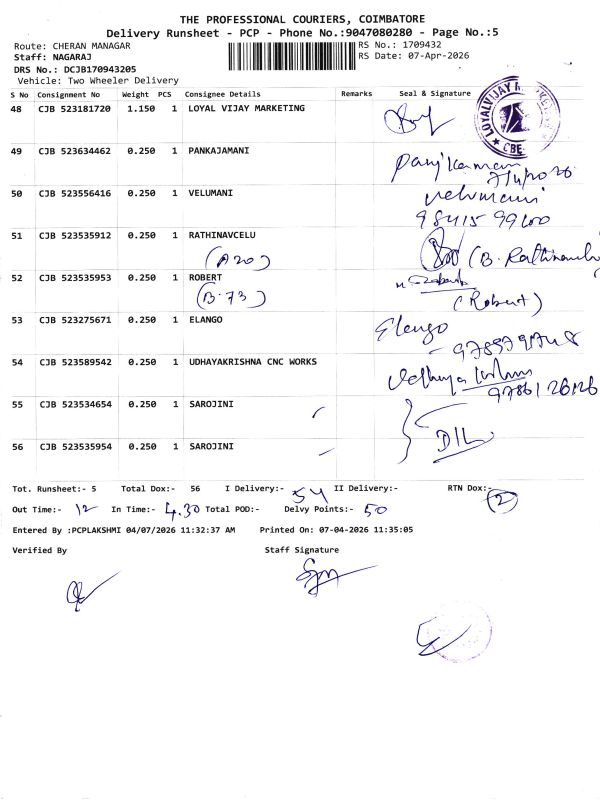 THE PROFESSIONAL COURIERS, COIMBATORE
Delivery Runsheet - PCP - Phone No.:9047080280 - Page No.:5
Route: CHERAN MANAGAR RS No.: 1709432
Staff: NAGARAJ RS Date: 07-Apr-2026
DRS No.: DCJB170943205
Vehicle: Two Wheeler Delivery
S No Consignment No Weight PCS Consignee Details Remarks Seal & Signature
48 CJB 523181720 1.150 1 LOYAL VIJAY MARKETING
LOYAL VIJAY
CBE
49 CJB 523634462 0.250 1 PANKAJAMANI
50 CJB 523556416 0.250 1 VELUMANI velumani
51 CJB 523535912 0.250 1 RATHINAVCELU
(A 20) (B. Rathinavelu
52 CJB 523535953 0.250 1 ROBERT
(B-73) (Robert)
53 CJB 523275671 0.250 1 ELANGO Elango
54 CJB 523589542 0.250 1 UDHAYAKRISHNA CNC WORKS
9786126126
55 CJB 523534654 0.250 1 SAROJINI
D/L
56 CJB 523535954 0.250 1 SAROJINI
Tot. Runsheet:- 5 Total Dox:- 56 I Delivery:- 54 II Delivery:- RTN Dox:- 2
Out Time:- 12 In Time:- 4.30 Total POD:- Delvy Points:- 50
Entered By :PCPLAKSHMI 04/07/2026 11:32:37 AM Printed On: 07-04-2026 11:35:05
Verified By Staff Signature